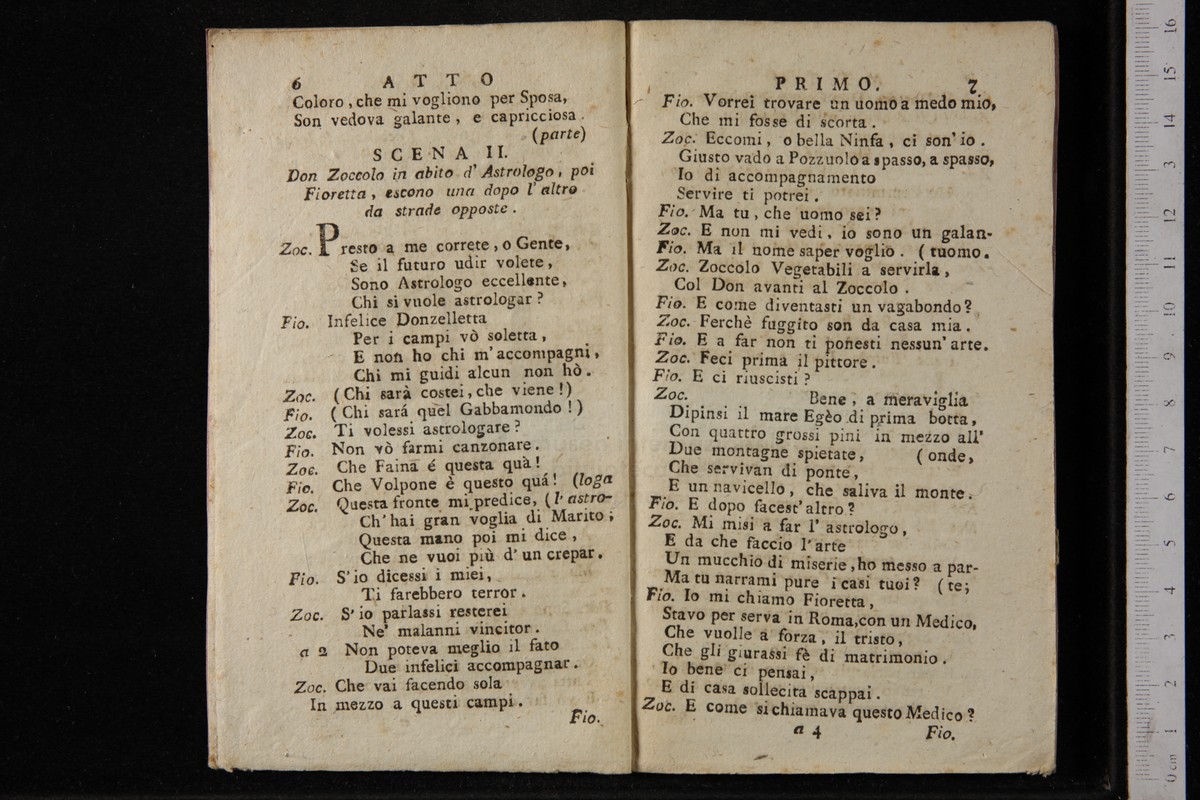 6 ATTO
Coloro, che mi vogliono per Sposa,
Son vedova galante, e capricciosa.
(parte)
SCENA II.
Don Zoccolo in abito d' Astrologo, poi
Fioretta, escono una dopo l' altro
da strade opposte.
Zoc. Presto a me correte, o Gente,
Se il futuro udir volete,
Sono Astrologo eccellente,
Chi si vuole astrologar?
Fio. Infelice Donzelletta
Per i campi vò soletta,
E non ho chi m'accompagni,
Chi mi guidi alcun non hò.
Zoc. (Chi sarà costei, che viene!)
Fio. (Chi sará quel Gabbamondo!)
Zoc. Ti volessi astrologare?
Fio. Non vò farmi canzonare.
Zoc. Che Faina é questa quà!
Fio. Che Volpone è questo quá! (loga
Zoc. Questa fronte mi predice, (l'astro-
Ch'hai gran voglia di Marito;
Questa mano poi mi dice,
Che ne vuoi più d' un crepar.
Fio. S'io dicessi i miei,
Ti farebbero terror.
Zoc. S'io parlassi resterei
Ne' malanni vincitor.
a 2 Non poteva meglio il fato
Due infelici accompagnar.
Zoc. Che vai facendo sola
In mezzo a questi campi.
Fio.
PRIMO. 7
Fio. Vorrei trovare un uomo a medo mio,
Che mi fosse di scorta.
Zoc. Eccomi, o bella Ninfa, ci son' io.
Giusto vado a Pozzuolo a spasso, a spasso,
Io di accompagnamento
Servire ti potrei.
Fio. Ma tu, che uomo sei?
Zoc. E non mi vedi, io sono un galan-
Fio. Ma il nome saper voglio. (tuomo.
Zoc. Zoccolo Vegetabili a servirla,
Col Don avanti al Zoccolo.
Fio. E come diventasti un vagabondo?
Zoc. Ferchè fuggito son da casa mia.
Fio. E a far non ti ponesti nessun' arte.
Zoc. Feci prima il pittore.
Fio. E ci riuscisti?
Zoc. Bene, a meraviglia
Dipinsi il mare Egèo di prima botta,
Con quattro grossi pini in mezzo all'
Due montagne spietate, (onde,
Che servivan di ponte,
E un navicello, che saliva il monte.
Fio. E dopo facest'altro?
Zoc. Mi misi a far l' astrologo,
E da che faccio l'arte
Un mucchio di miserie, ho messo a par-
Ma tu narrami pure i casi tuoi? (te;
Fio. Io mi chiamo Fioretta,
Stavo per serva in Roma, con un Medico,
Che vuolle a forza, il tristo,
Che gli giurassi fè di matrimonio.
Io bene ci pensai,
E di casa sollecita scappai.
Zoc. E come si chiamava questo Medico?
a 4 Fio.
0 cm 1 2 3 4 5 6 7 8 9 10 11 12 13 14 15 16